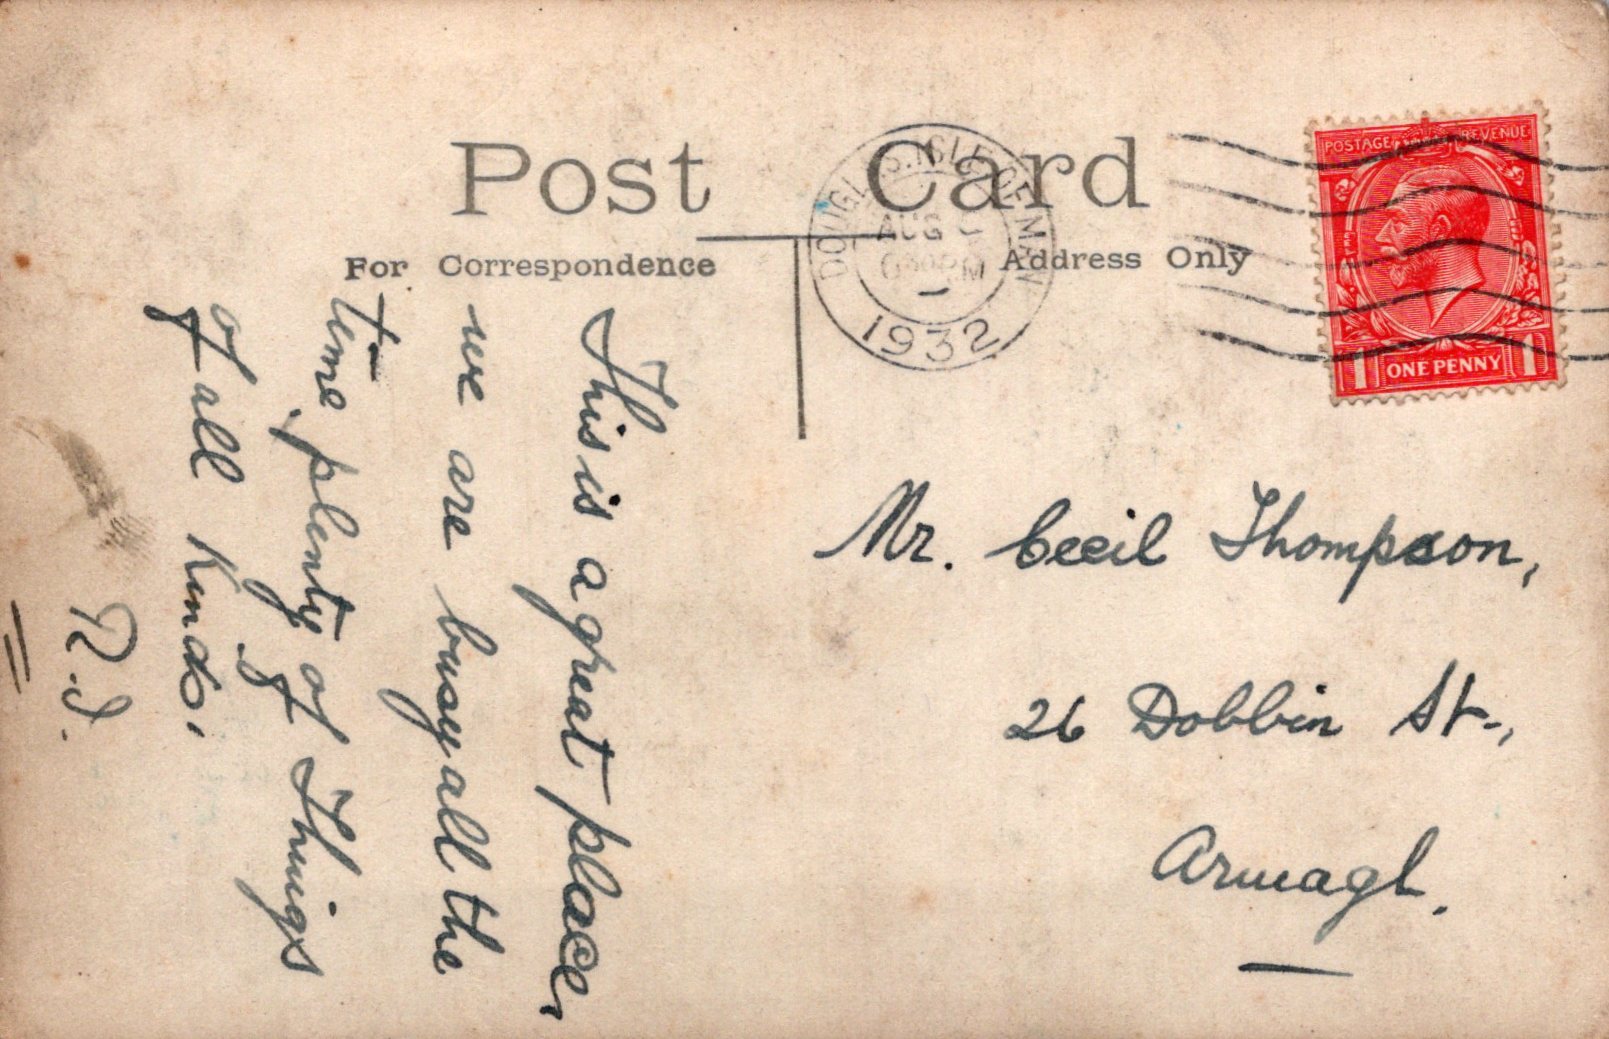 Post Card
For Correspondence
Address Only
DOUGLAS. ISLE OF MAN
AUG
PM
1932
POSTAGE REVENUE
1 ONE PENNY 1
This is a great place,
we are busy all the
time, plenty of Things
of all Kinds.
Mr. Cecil Thompson,
26 Dobbin St.,
Armagh.